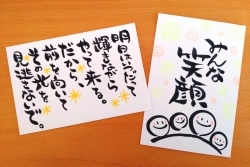 明日はいつだって
輝きながら
やって来る。
だから、
前を向いて
その光を
見逃さないで。
みんな
笑顔